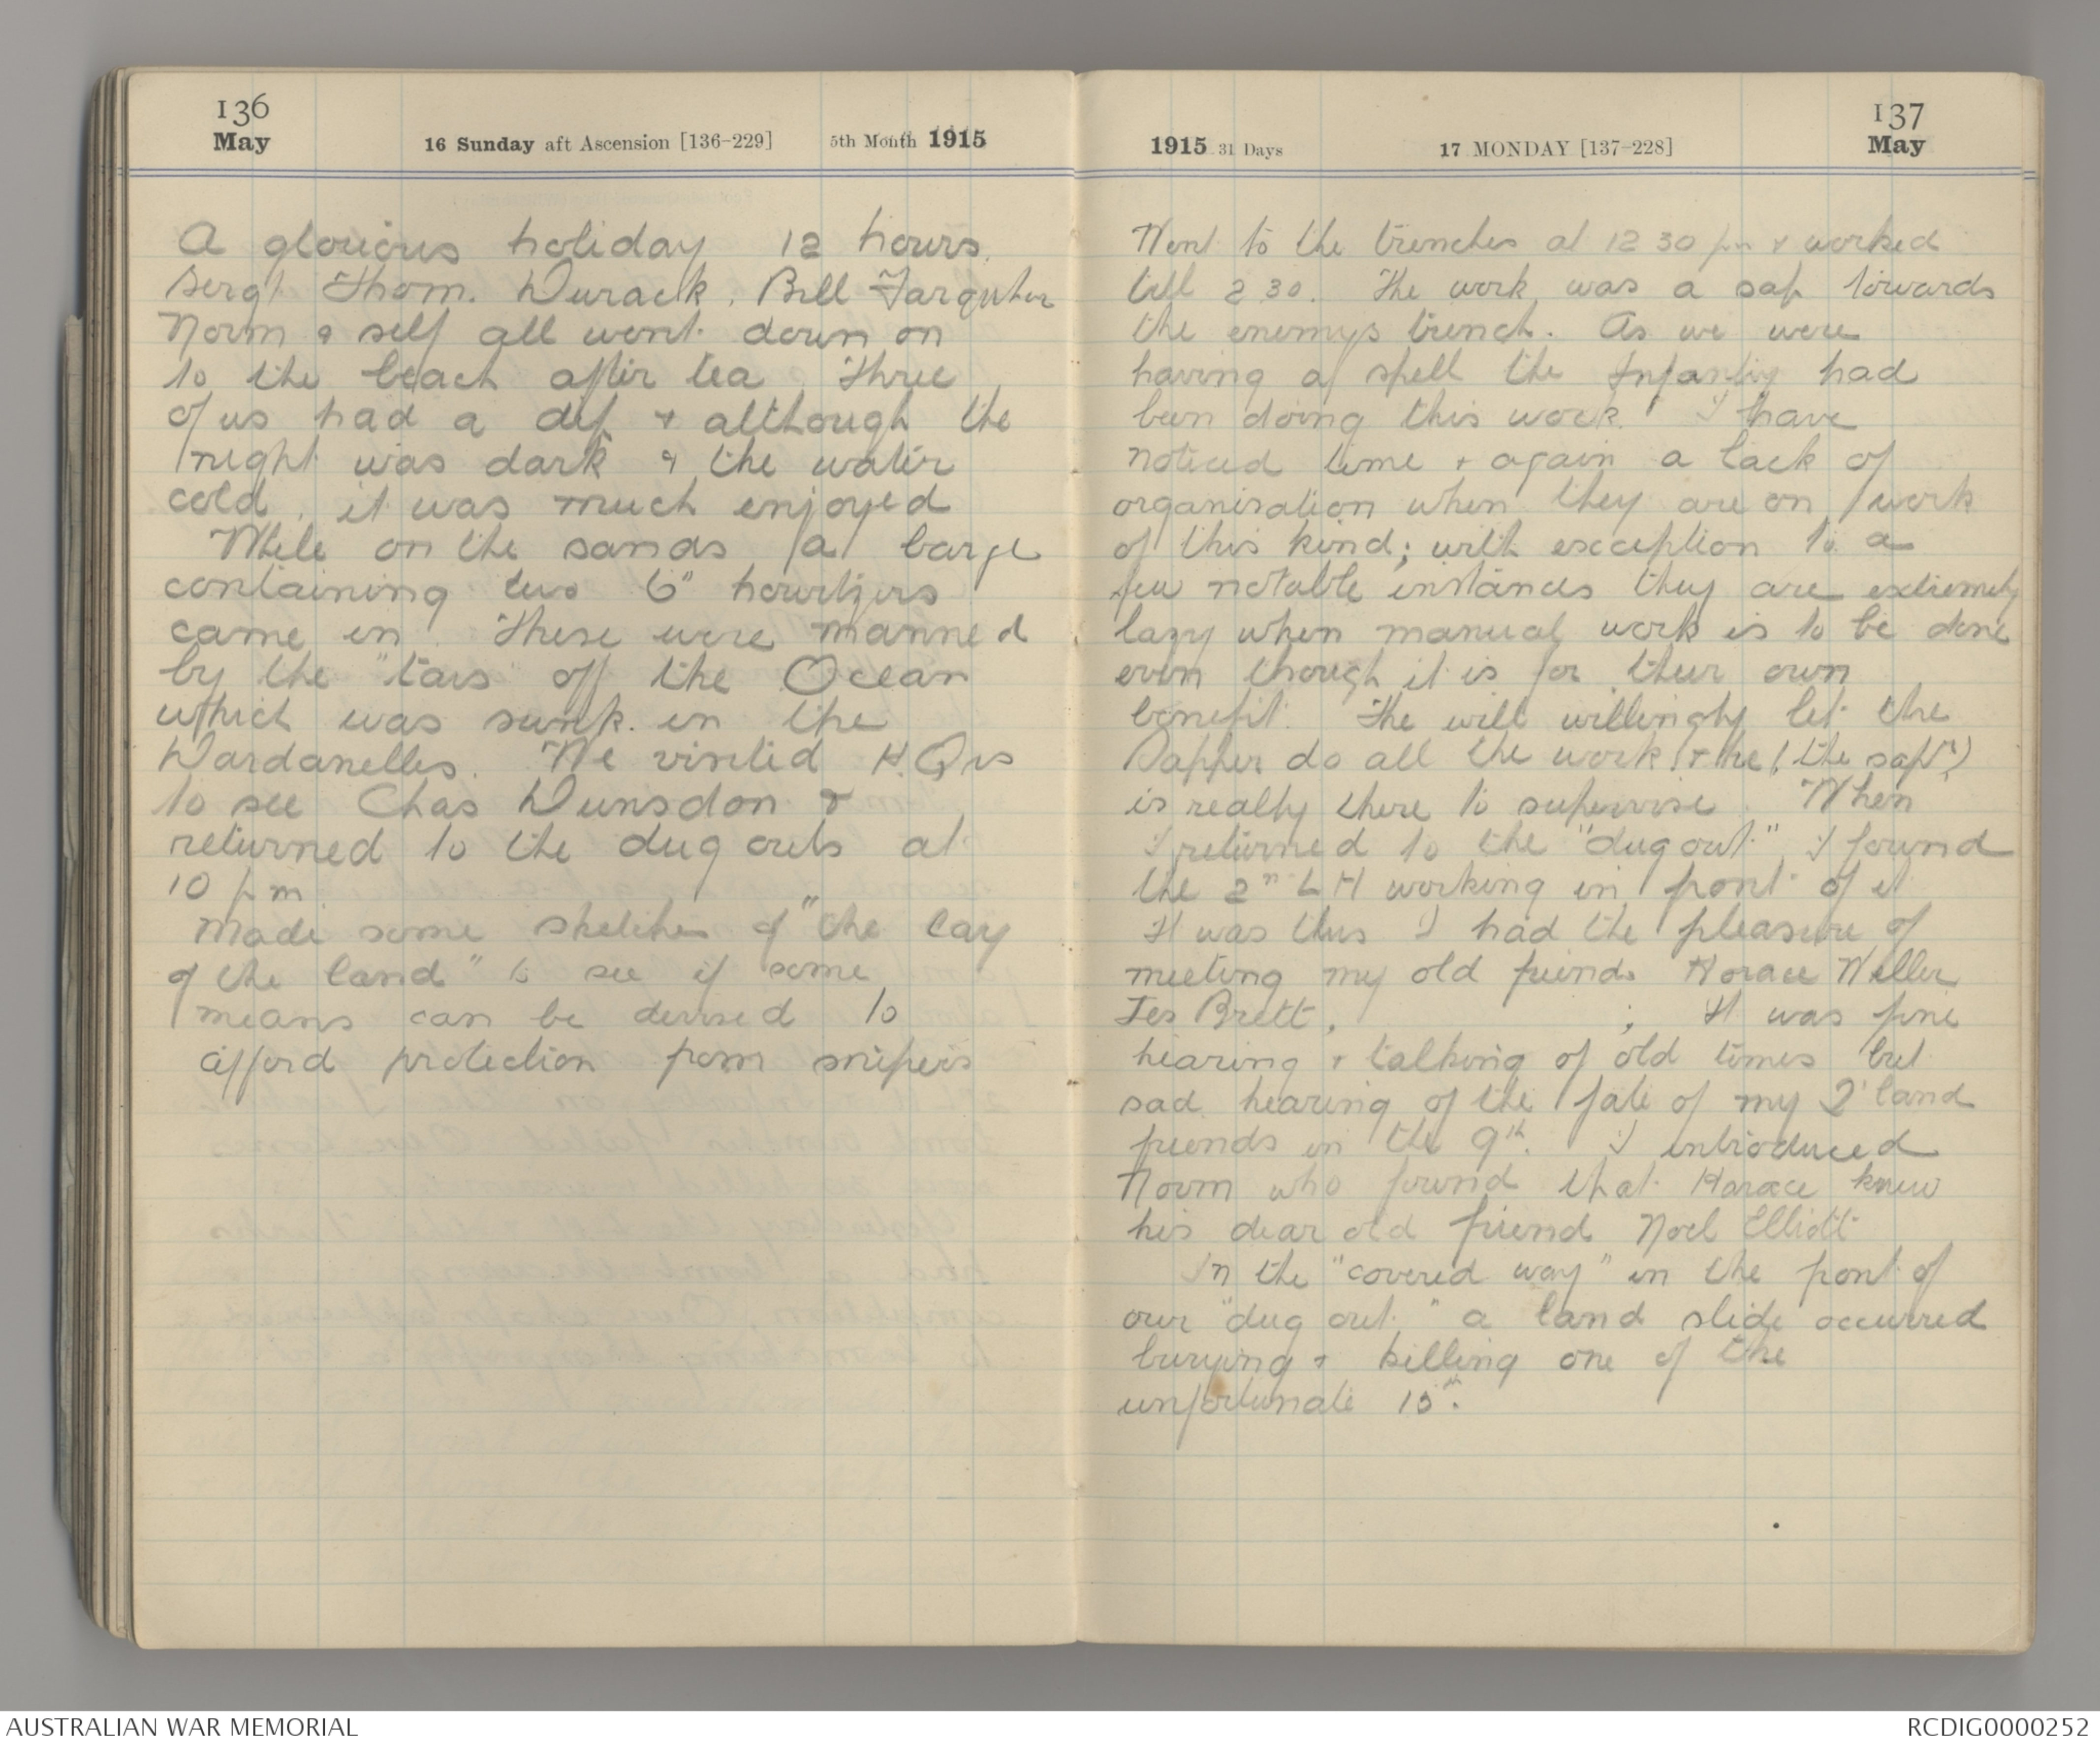 136
May
16 Sunday aft Ascension [136-229] 5th Month 1915
A glorious holiday 12 hours.
Sergt Thom. Durack, Bill Farquhar
Norm & self all went down on
to the beach after tea. Three
of us had a dip & although the
night was dark & the water
cold, it was much enjoyed
While on the sands a barge
containing two 6" howitzers
came in. These were manned
by the "tars" off the Ocean
which was sunk in the
Dardanelles. We visited H.Qrs
to see Chas Dunsdon &
returned to the dug outs at
10 pm
Made some sketches of "the lay
of the land" to see if some
means can be devised to
afford protection from snipers
1915 31 Days 17 MONDAY [137-228]
137
May
Went to the trenches at 12 30 pm & worked
till 2 30. The work was a sap towards
the enemys trench. As we were
having a spell the Infantry had
been doing this work. I have
noticed time & again a lack of
organisation when they are on work
of this kind; with exception to a
few notable instances they are extremely
lazy when manual work is to be done
even though it is for their own
benefit. The will willingly let the
Sapper do all the work & he (the sapr)
is really there to supervise. When
I returned to the "dug out" I found
the 2n LH working in front of it
It was thus I had the pleasure of
meeting my old friends Horace Weller
Jes Brett, ; It was fine
hearing & talking of old times but
sad hearing of the fate of my Q'land
friends in the 9th. I introduced
Norm who found that Horace knew
his dear old friend Noel Elliott
In the "covered way" in the front of
our "dug out" a land slide occurred
burying & killing one of the
unfortunate 15th.
AUSTRALIAN WAR MEMORIAL
RCDIG0000252